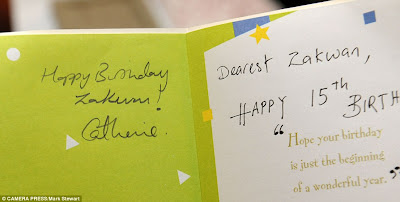 Happy Birthday
Zakwan!
Catherine.
Dearest Zakwan,
HAPPY 15th BIRTH
“Hope your birthday
is just the beginning
of a wonderful year.”
© CAMERA PRESS/Mark Stewart